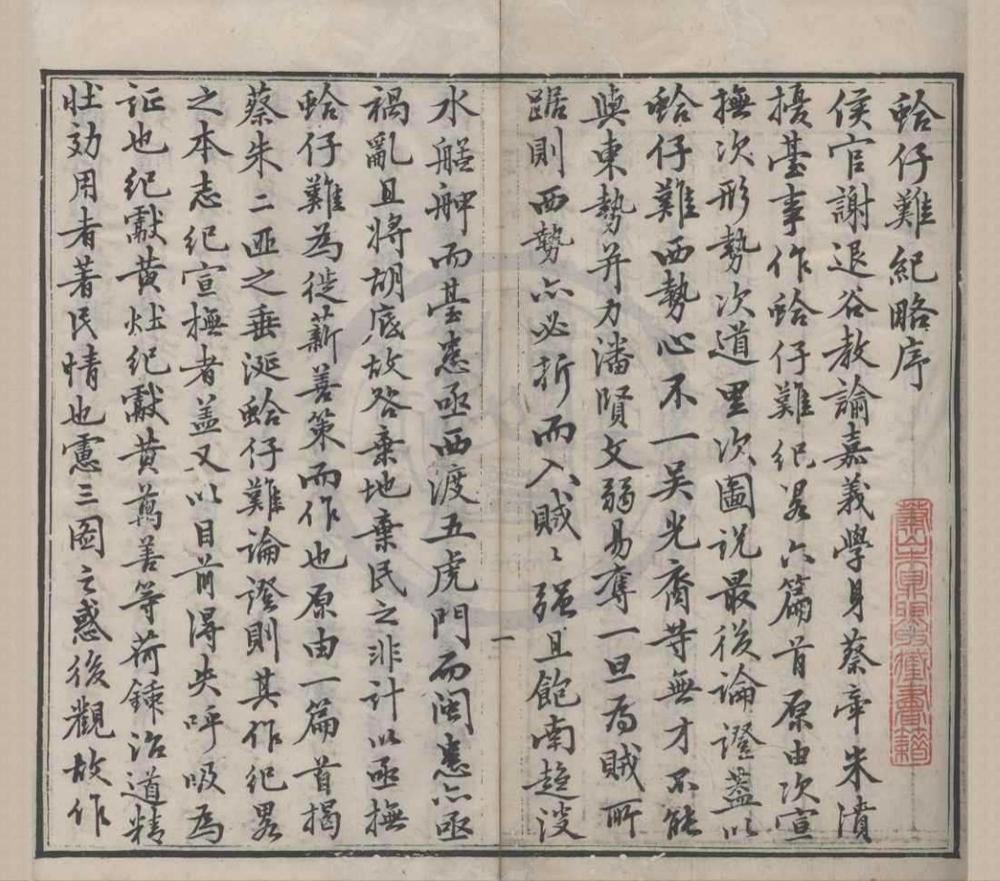 蛤仔難紀略序
侯官謝退谷教諭嘉義學身蔡牽朱濆
擾臺事作蛤仔難紀畧六篇首原由次宣
撫次形勢次道里次圖說最後論證蓋以
蛤仔難西勢心不一吳光裔等無才不能
與東勢并力潘賢文弱易奪一旦為賊所
踞則西勢亦必折而入賊〻強且飽南趨淡
水艋舺而臺患亟西渡五虎門而閩患亦亟
禍亂且將胡底故咎棄地棄民之非計以亟撫
蛤仔難為徙薪善策而作也原由一篇首揭
蔡朱二匪之垂涎蛤仔難論證則其作紀畧
之本志紀宣撫者盖又以目前得失呼吸為
証也紀獻黃灶紀獻黄萬善等荷鍤治道精
壯効用者著民情也慮三圖之惑後觀故作
一